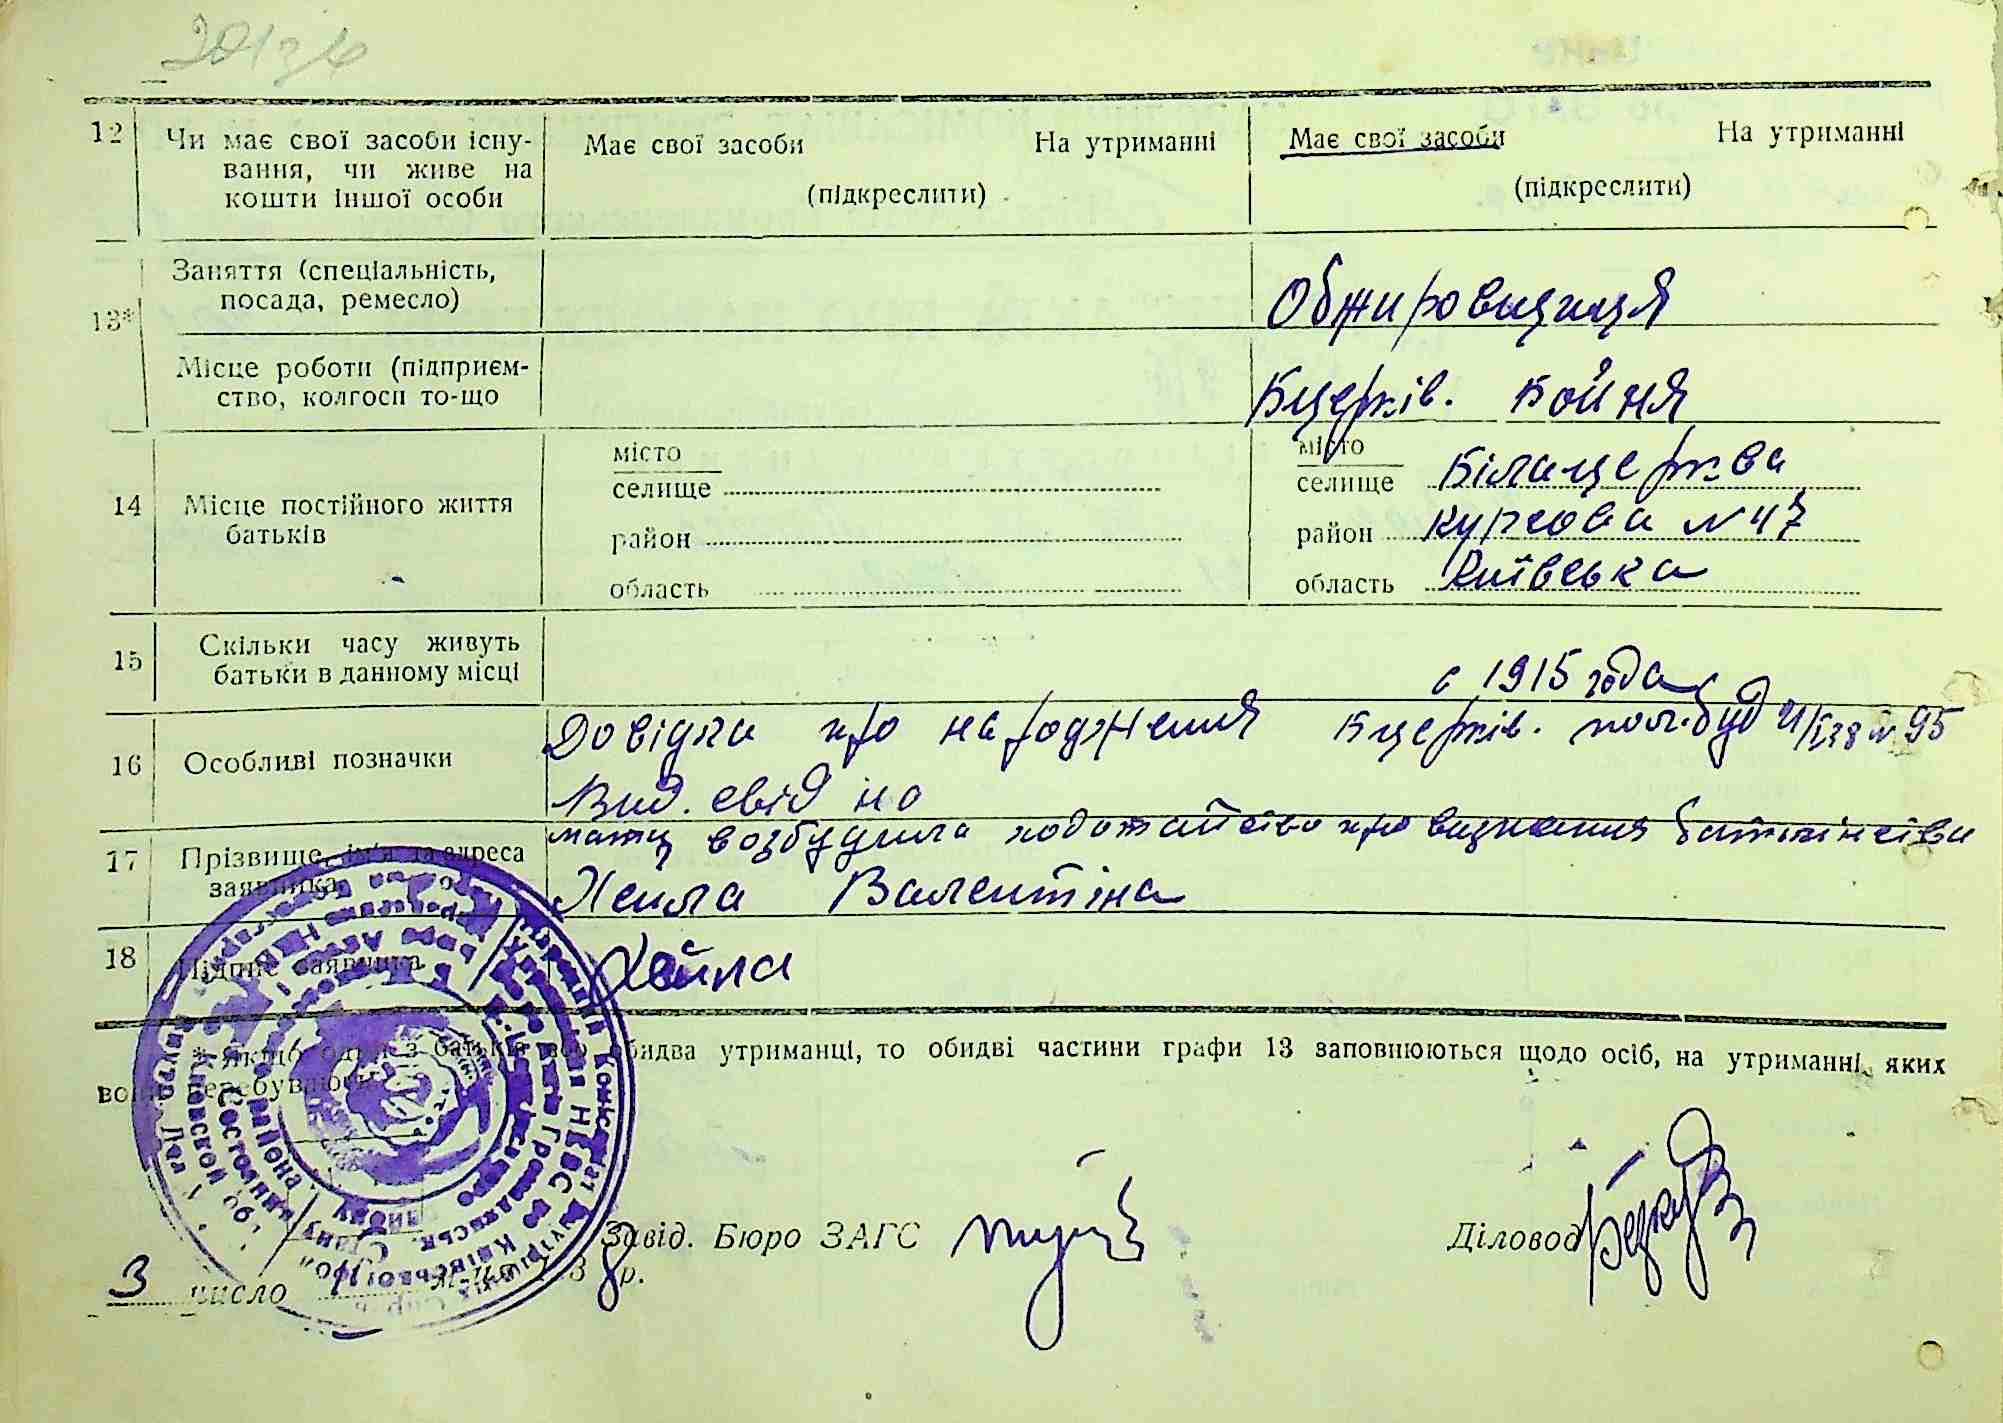 12 Чи має свої засоби існу-
вання, чи живе на
кошти іншої особи
Має свої засоби На утриманні
(підкреслити)
Має свої засоби На утриманні
(підкреслити)
13*
Заняття (спеціальність,
посада, ремесло)
Обжировщиця
Місце роботи (підприєм-
ство, колгосп то-що
Бцерків. Бойня
14 Місце постійного життя
батьків
місто
селище
район
область
місто
селище Білацерква
район Курсова N 47
область Київська
15 Скільки часу живуть
батьки в данному місці
с 1915 года
16 Особливі позначки
Довідка про народження Бцерків. пол.буд N 95
Вид. свід на
мать возбудила ходотайство про визнання батьківства
17 Прізвище, ім'я та адреса
заявника
Хейла Валентіна
18 Підпис заявника
Хейла
* Якщо один з батьків або обидва утриманці, то обидві частини графи 13 заповнюються щодо осіб, на утриманні яких
вони перебувають.
Завід. Бюро ЗАГС
Діловод
3 число м-ця 193 8 р.